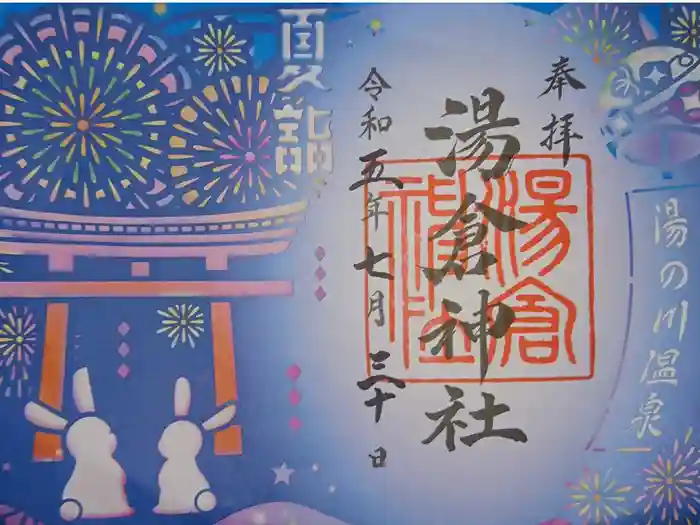 奉拝
湯倉神社
湯倉神社
令和五年七月三十日
夏詣
湯の川温泉